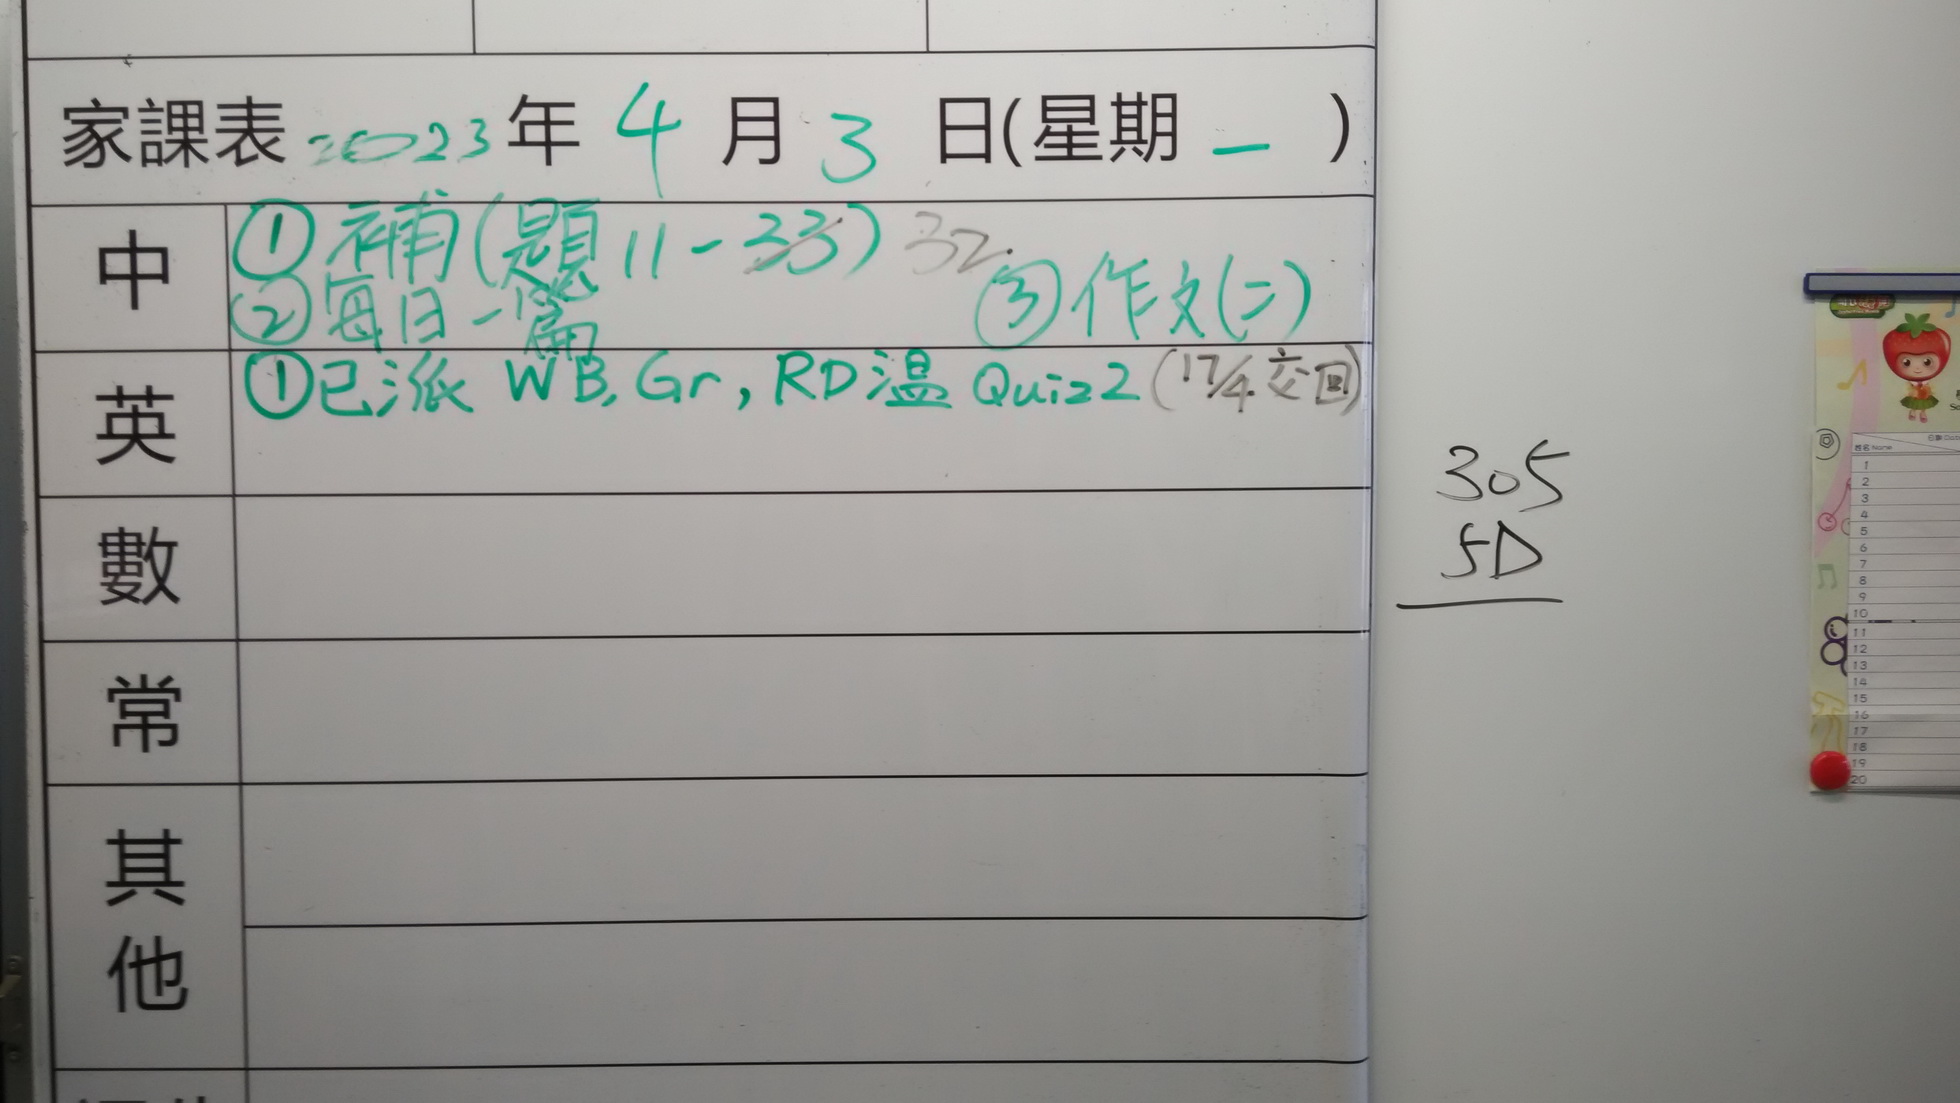 家課表 2023 年 4 月 3 日(星期 一 )
中
① 補(題 11-33) 32
② 每日一篇 ③ 作文(二)
英
① 已派 WB, Gr, RD 溫 Quiz 2 (17/4 交回)
數
常
其他
305
5D
姓名 Name
1
2
3
4
5
6
7
8
9
10
11
12
13
14
15
16
17
18
19
20